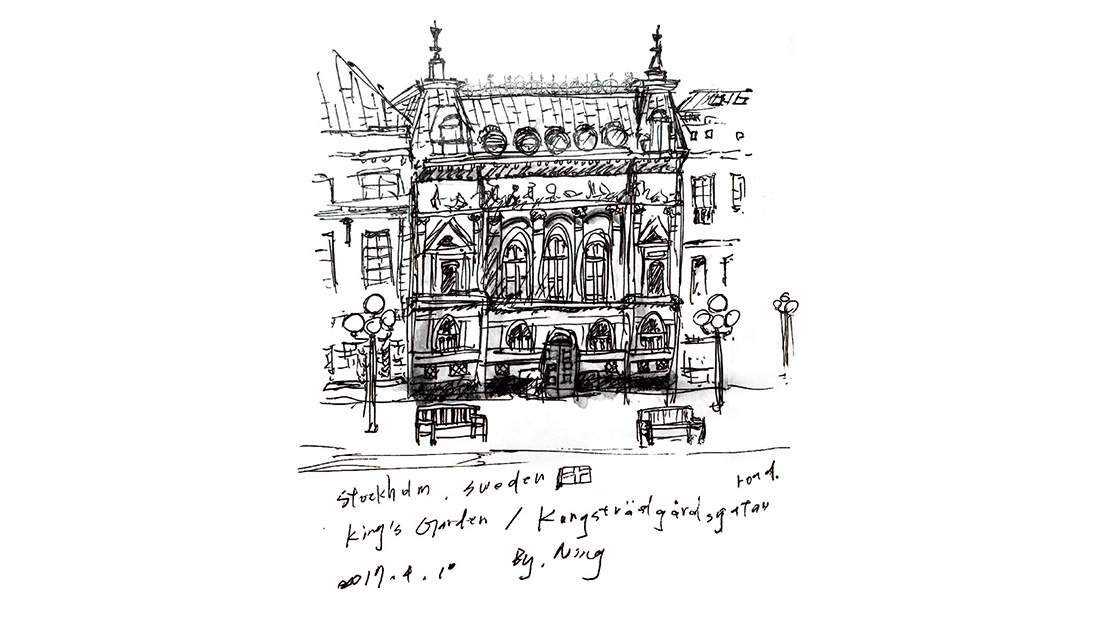 Stockholm, Sweden
road.
King's Garden / Kungsträdgårdsgatan
2017.4.10 By. Ning